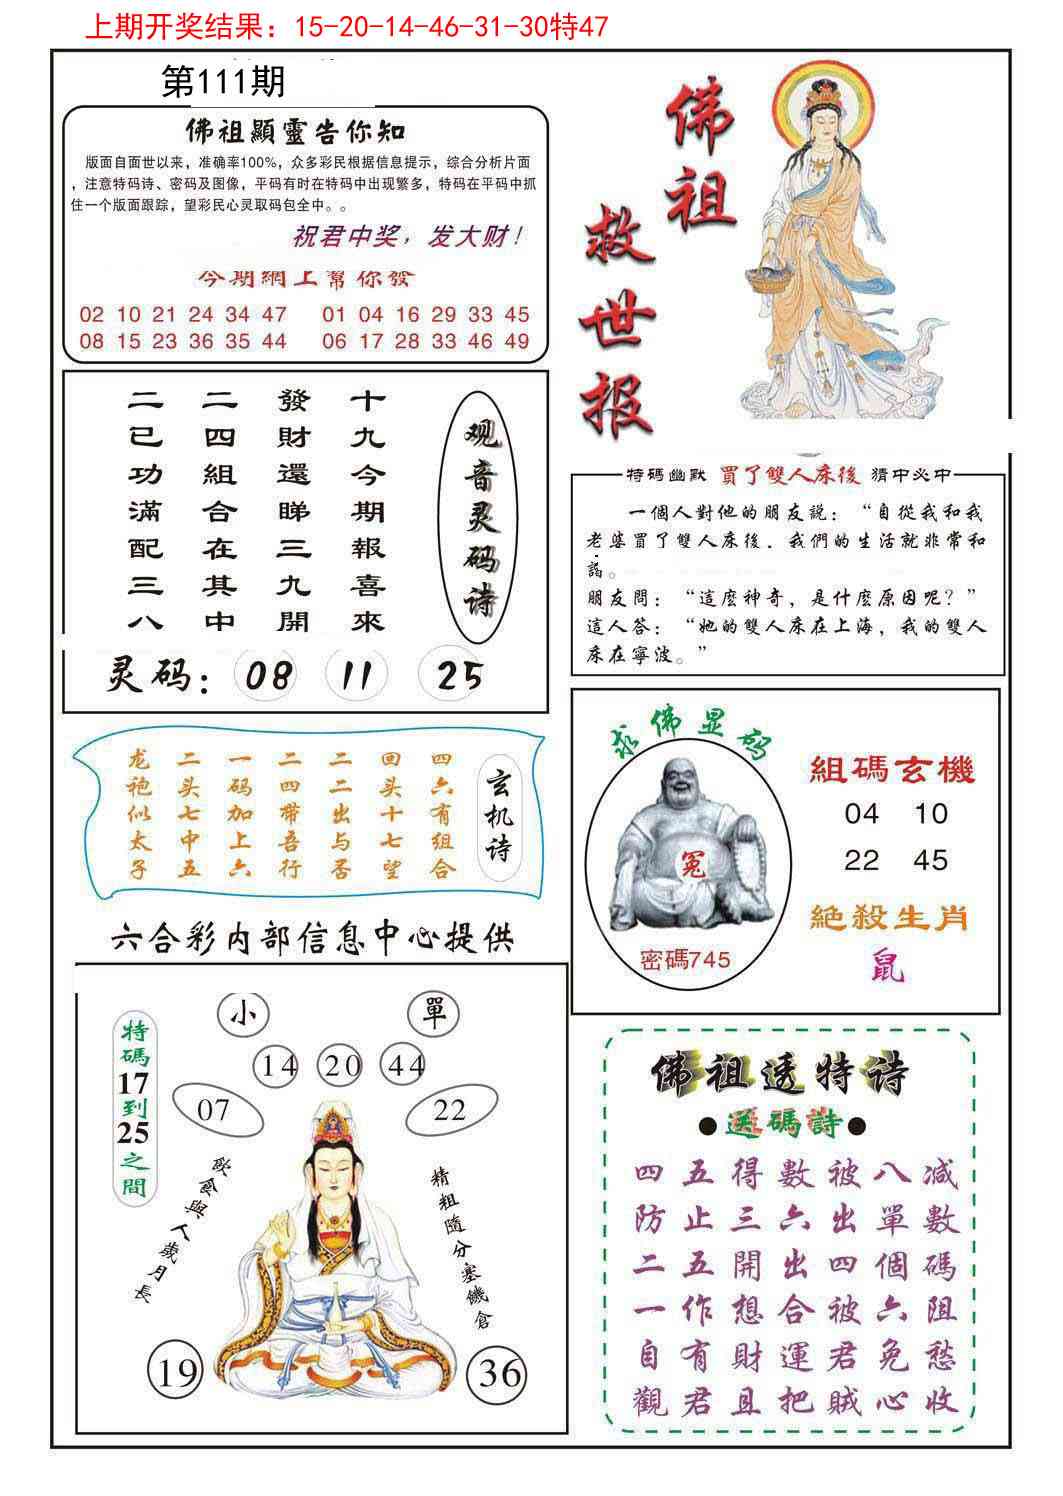 上期开奖结果：15-20-14-46-31-30特47
第111期
佛祖顯靈告你知
版面自面世以来，准确率100%，众多彩民根据信息提示，综合分析片面
，注意特码诗、密码及图像，平码有时在特码中出现繁多，特码在平码中抓
住一个版面跟踪，望彩民心灵取码包全中。。
祝君中奖，发大财！
今期網上幫你發
02 10 21 24 34 47 01 04 16 29 33 45
08 15 23 36 35 44 06 17 28 33 46 49
佛祖
救世报
十九今期報喜來
發財還睇三九開
二四組合在其中
二已功滿配三八
观音灵码诗
灵码：08 11 25
特碼幽默 買了雙人床後 猜中必中
一個人對他的朋友説：“自從我和我
老婆買了雙人床後．我們的生活就非常和
諧。
朋友問：“這麽神奇，是什麽原因呢？”
這人答：“她的雙人床在上海，我的雙人
床在寧波。”
玄机诗
四六有组合
回头十七望
二二出与否
二四带吾行
一码加上六
二头七中五
龙袍似太子
求佛显码
冤
密碼745
組碼玄機
04 10
22 45
絕殺生肖
鼠
六合彩内部信息中心提供
特碼17到25之間
小 單
14 20 44
07 22
飲食與人歲月長
精粗隨分塞饑倉
19 36
佛祖透特诗
●送碼詩●
四五得數被八減
防止三六出單數
二五開出四個碼
一作想合被六阻
自有財運君免愁
觀君且把賊心收